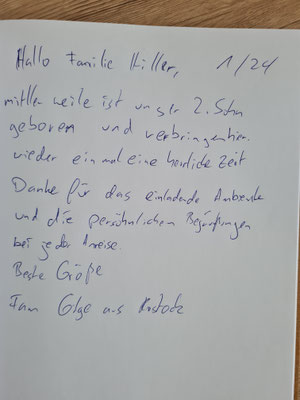 Hallo Familie Hiller, 1/24
mittler weile ist unser 2. Sohn
geboren und verbringen hier
wieder ein mal eine herrliche Zeit
Danke für das einladende Ambiente
und die persönlichen Begrüßungen
bei jeder Anreise.
Beste Grüße
Fam aus Rostock